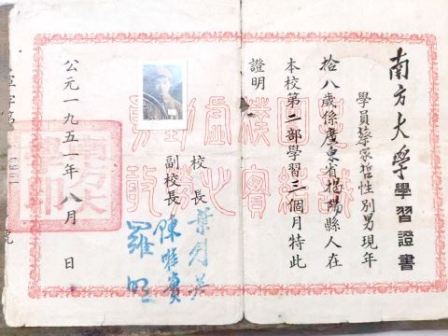 南方大學學習證書
學員蔡家哲性別男現年
拾八歲係廣東省揭陽縣人在
本校第二部學習三個月特此
證明
校長 葉劍英
副校長 陳唯實
羅明
公元一九五一年八月 日
字第 號